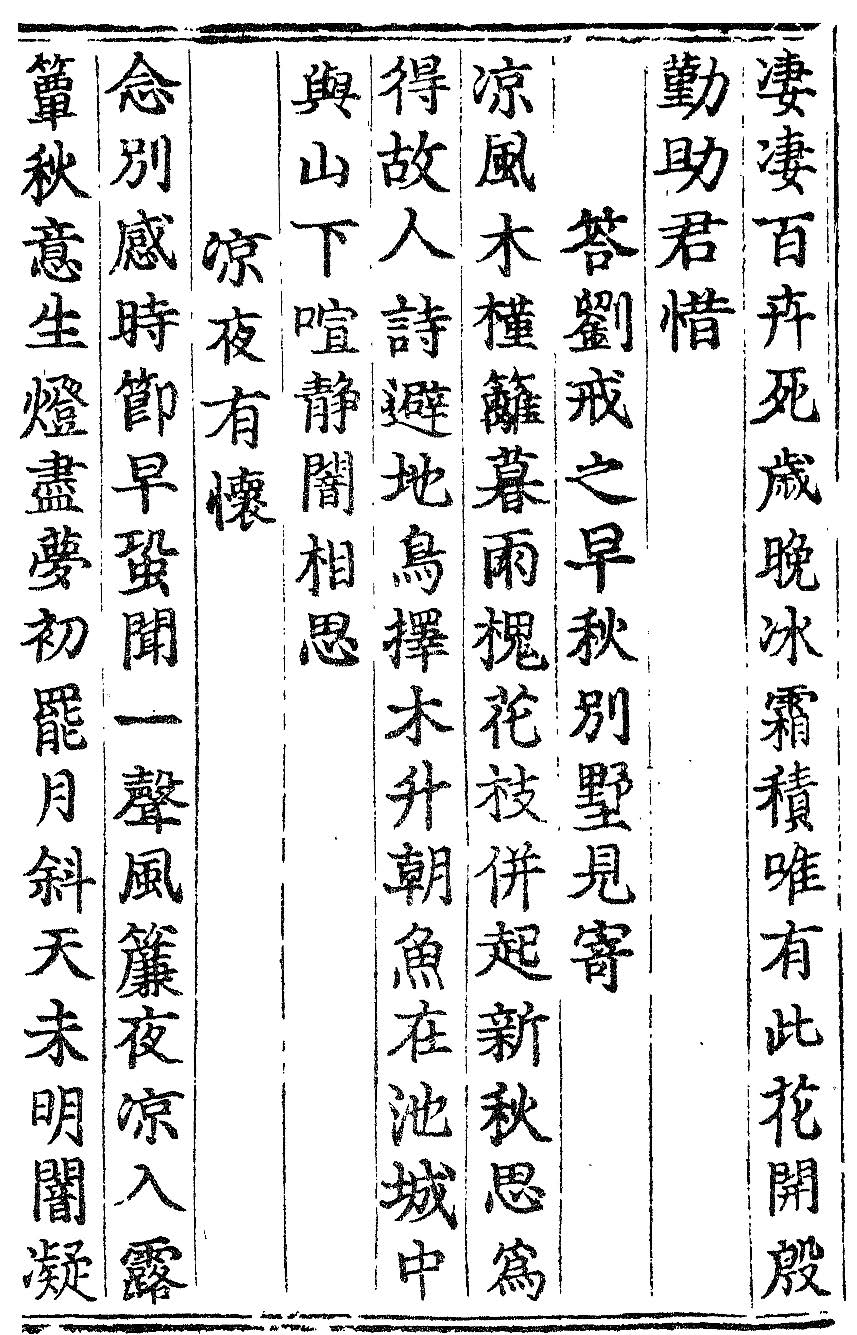 凄凄百卉死歲晚冰霜積唯有此花開殷
勤助君惜
荅劉戒之早秋別墅見寄
凉風木槿籬暮雨槐花枝併起新秋思爲
得故人詩避地鳥擇木升朝魚在池城中
與山下喧静闇相思
凉夜有懷
念別感時節早蛩聞一聲風簾夜凉入露
簟秋意生燈盡夢初罷月斜天未明闇凝